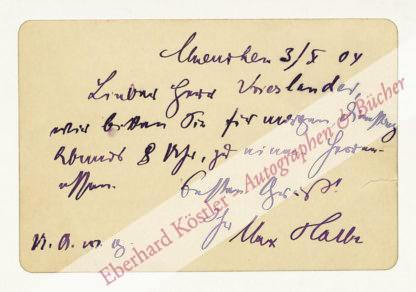 Muenchen 3/X 04
Lieber Herr Vrieslander,
wir bitten Sie für morgen, Dienstag
Abends 8 Uhr, zu einem Herren-
essen. Besten Gruß!
Ihr Max Halbe
U. A. w. g.
Eberhard Köstler Autographen & Bücher